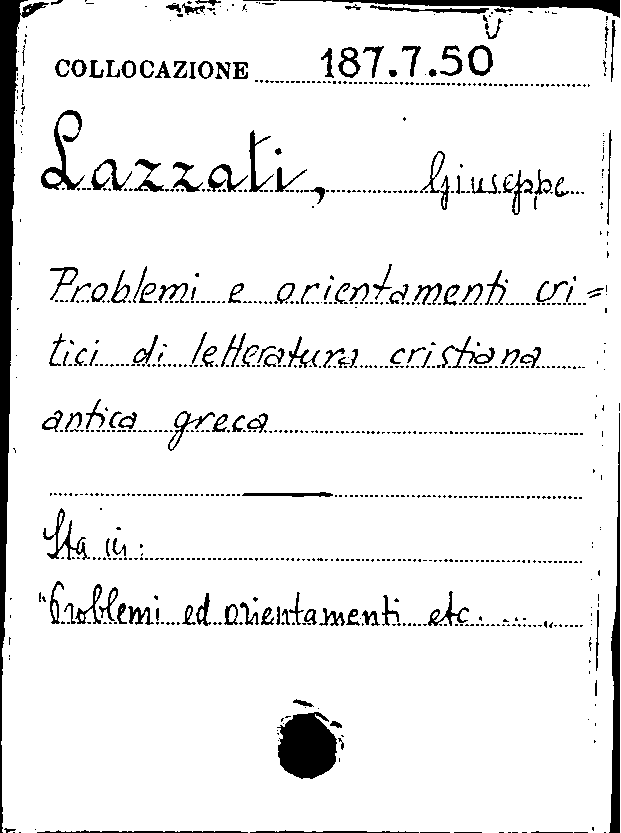 COLLOCAZIONE 187.7.50
Lazzati, Giuseppe
Problemi e orientamenti cri=
tici di letteratura cristiana
antica greca
Sta in:
"Problemi ed orientamenti etc. ... "